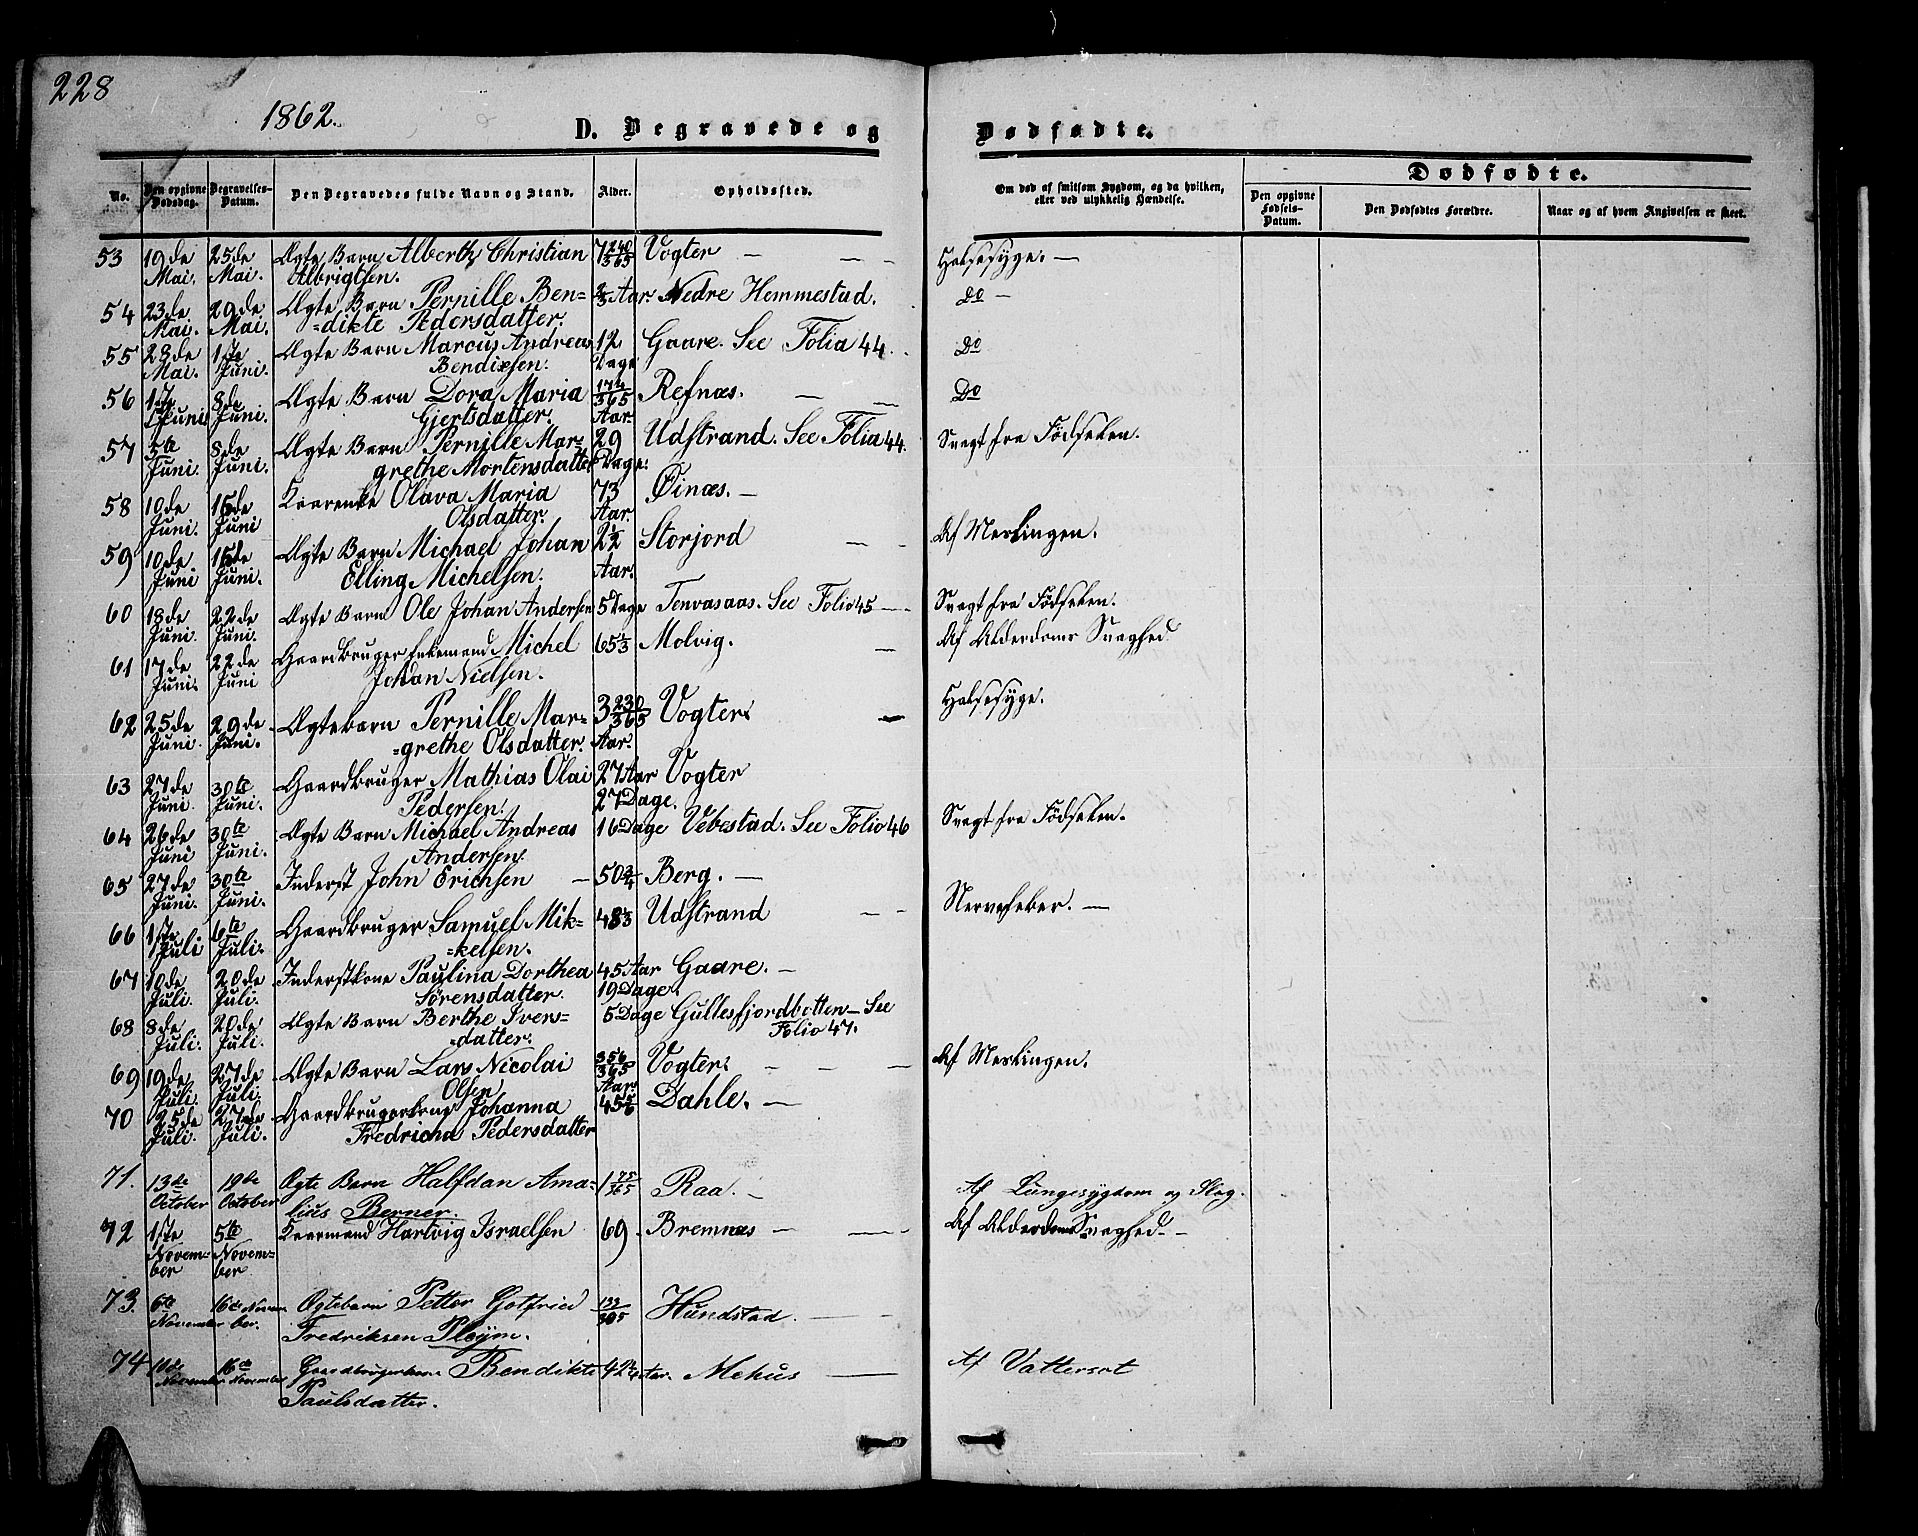 228
1862.
D. Begravede og Dødfødte.
Dødfødte.
No. Den opgivne Dødsdag. Begravelses-Datum. Den Begravedes fulde Navn og Stand. Alder. Opholdssted. Om død af smitsom Sygdom, og da hvilken, eller ved ulykkelig Hændelse. Den opgivne Fødsels-Datum. Den Dødfødtes Forældre. Naar og af hvem Angivelsen er skeet.
53 19de 25de Ægte Barn Alberth Christian 7 240/365 Vogter — — — Halsesyge. —
Mai. Mai. Albrigtsen.
54 23de 29de Ægte Barn Pernille Ben= Aar. Nedre Hemmestad. Do —
Mai. Mai. =dikte Pedersdatter.
55 28de 1ste Ægte Barn Marcus Andreas 12 Gaare. See Folia 44. Do
Mai. Juni. Bendixsen. Dage
56 1ste 8de Ægte Barn Dora Maria 365 Refnæs. — — Do
Juni Juni. Gjertsdatter. Aar.
57 5te 8de Ægte Barn Pernille Mar= 29 Udstrand. See Folia 44. Svagt fra Fødselen.
Juni. Juni. grethe Mortensdatter Dage.
58 10de 15de Kaarenke Olava Maria 73 Øinæs. —
Juni. Juni Olsdatter. Aar.
59 10de 15de Ægte Barn Michael Johan 2 1/2 Storjord — — Af Meslingen.
Juni Juni. Elling Michelsen. Aar.
60 18de 22de Ægte Barn Ole Johan Andersen 5 Dage Tenvasaas. See Folio 45 — Svagt fra Fødselen.
Juni. Juni.
61 17de 22de Gaardbruger Enkemand Michel 65 1/3 Molvig. — Af Alderdoms Svaghed.
Juni. Juni Johan Nielsen.
62 25de 29de Ægtebarn Pernille Mar= 3 230/365 Vogter. — Halsesyge.
Juni. Juni. =grethe Olsdatter. Aar.
63 27de 30te Gaardbruger Mathias Olai 27 Aar Vogter
Juni. Juni. Pedersen. 27 Dage.
64 26de 30te Ægte Barn Michael Andreas 16 Dage Vebestad. See Folio 46 Svagt fra Fødselen.
Juni Juni. Andersen.
65 27de 30te Inderst John Erichsen — 50 3/4 Berg. —
Juni. Juni.
66 1ste 6te Gaardbruger Samuel Mik= 48 1/3 Udstrand — — Nervefeber. —
Juli Juli. =kelsen.
67 10de 20de Inderstkone Paulina Dorthea 45 Aar Gaare. —
Juli. Juli. Sørensdatter. 19 Dage.
68 8de 20de Ægte Barn Berthe Ivers= 5 Dage Gullesfjordbotten — See
Juli. Juli. =datter. Folio 47.
69 19de 27de Ægte Barn Lars Nicolai 356/365 Vogter. — — — Af Meslingen.
Juli. Juli. Olsen Aar.
70 25de 27de Gaardbrugerkone Johanna 45 5/6 Dahle. —
Juli. Juli. Fredricha Pedersdatter
71. 13de 19de Ægte Barn Halfdan Ama= 1 75/365 Raa. — Af Lungesygdom og Slag.
October October lius Berner.
72 1ste 5te Kaarmand Hartvig Israelsen 69. Bremnæs — — Af Alderdoms Svaghed. —
Novem= Novem=
ber ber
73. 6te 16de Novem Ægtebarn Petter Gotfried 133/365 Hundstad. —
November ber. Fredriksen Pleym.
74 10de 16de Gaardbrugerkone Bendikte 42 Aar. Mehus — Af Vattersot
November November Paulsdatter.